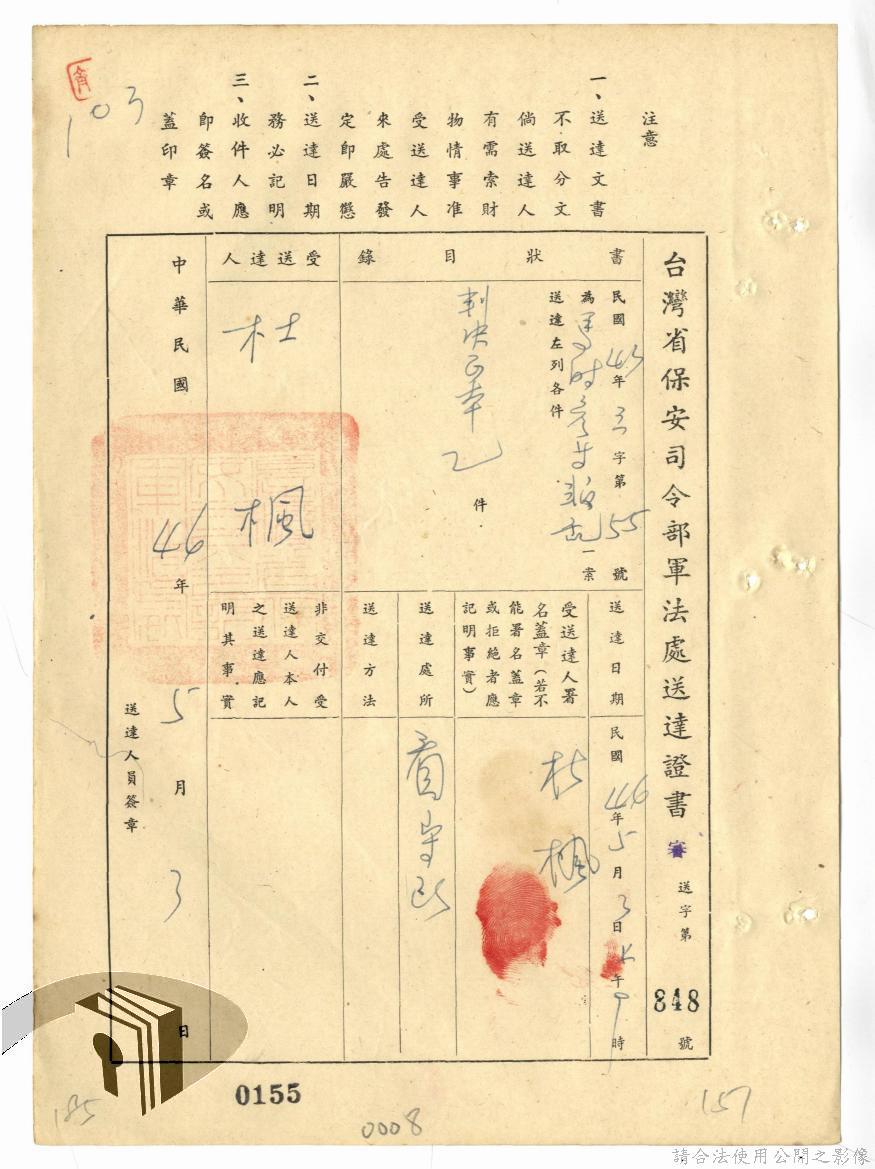 注意
一、送達文書
不取分文
倘送達人
有需索財
物情事准
受送達人
來處告發
定即嚴懲
二、送達日期
務必記明
三、收件人應
即簽名或
蓋印章
103
台灣省保安司令部軍法處送達證書
審
送字第
848
號
書狀目錄
民國 年 字第55號
為 一案
送達左列各件
判決正本乙件
受送達人
杜楓
中華民國46年5月3日
送達日期
民國46年5月3日 午9時
受送達人署
名蓋章(若不
能署名蓋章
或拒絕者應
記明事實)
杜楓
送達處所
看守所
送達方法
非交付受
送達人本人
之送達應記
明其事實
送達人員簽章
185
0155
0008
157
請合法使用公開之影像